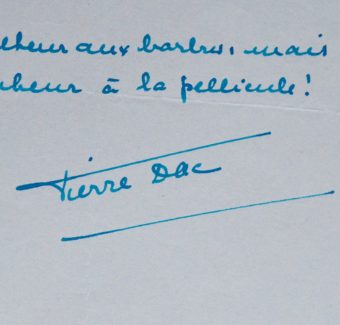 lheur aux barbus, mais
nheur à la pellicule !
Pierre Dac